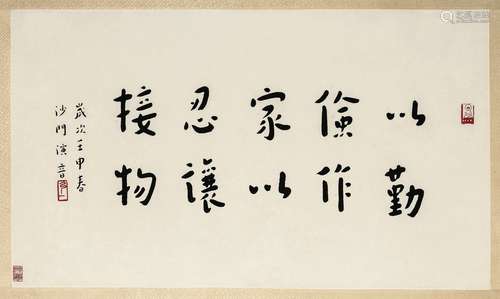 以勤
儉作
家以
忍讓
接物
歲次壬申春
沙門演音